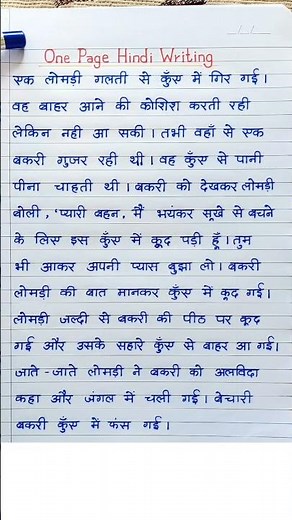 One Page Hindi Writing
एक लोमड़ी गलती से कुँए में गिर गई।
वह बाहर आने की कोशिश करती रही
लेकिन नही आ सकी। तभी वहाँ से एक
बकरी गुजर रही थी। वह कुँए से पानी
पीना चाहती थी। बकरी को देखकर लोमड़ी
बोली, 'प्यारी बहन, मैं भयंकर सूखे से बचने
के लिए इस कुँए में कूद पड़ी हूँ। तुम
भी आकर अपनी प्यास बुझा लो। बकरी
लोमड़ी की बात मानकर कुँए में कूद गई।
लोमड़ी जल्दी से बकरी की पीठ पर कूद
गई और उसके सहारे कुँए से बाहर आ गई।
जाते-जाते लोमड़ी ने बकरी को अलविदा
कहा और जंगल में चली गई। बेचारी
बकरी कुँए में फंस गई।